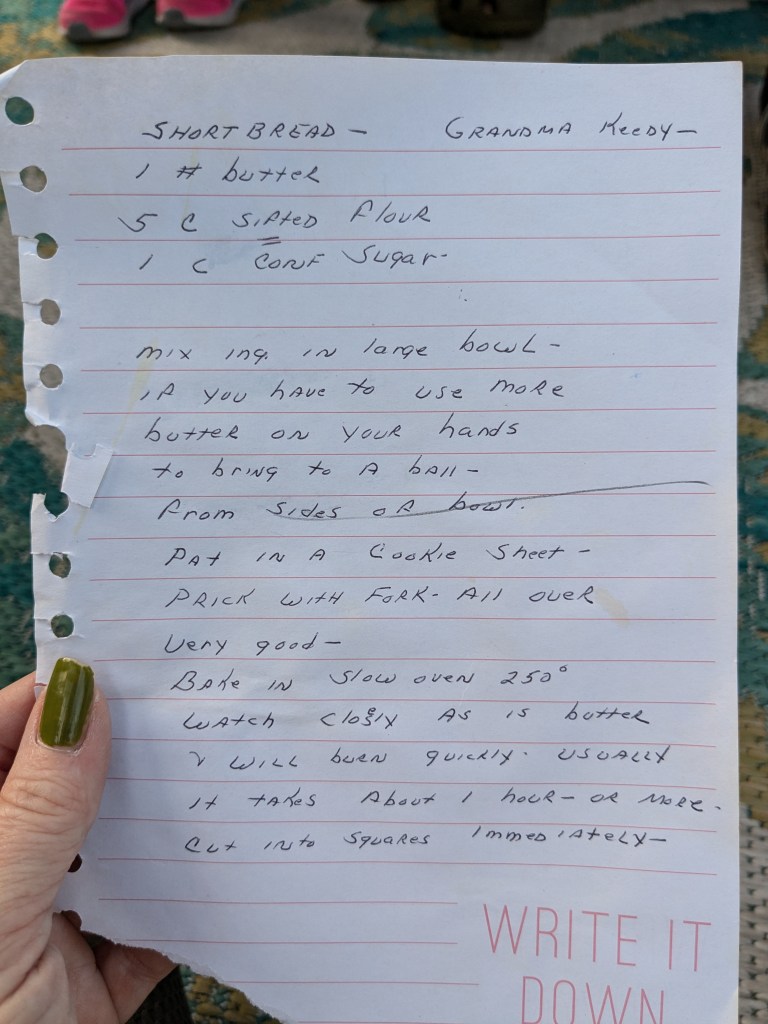 SHORTBREAD — GRANDMA KEEDY —
1 # butter
5 C SIFTED FLOUR
1 C CONF SUGAR-
MIX ING. IN large bowl -
IF YOU HAVE TO USE MORE
butter ON YOUR hands
to bring to A ball -
From Sides of bowl.
PAt IN A Cookie Sheet -
PRICK WITH FORK- All OVER
Very good -
BAKE IN Slow oven 250°
WAtch Closely AS IS butter
& WILL burn quickly. USUALLY
It tAKES About 1 hour - OR MORE.
Cut INto SQUARES IMMEDIAtELY -
WRITE IT
DOWN